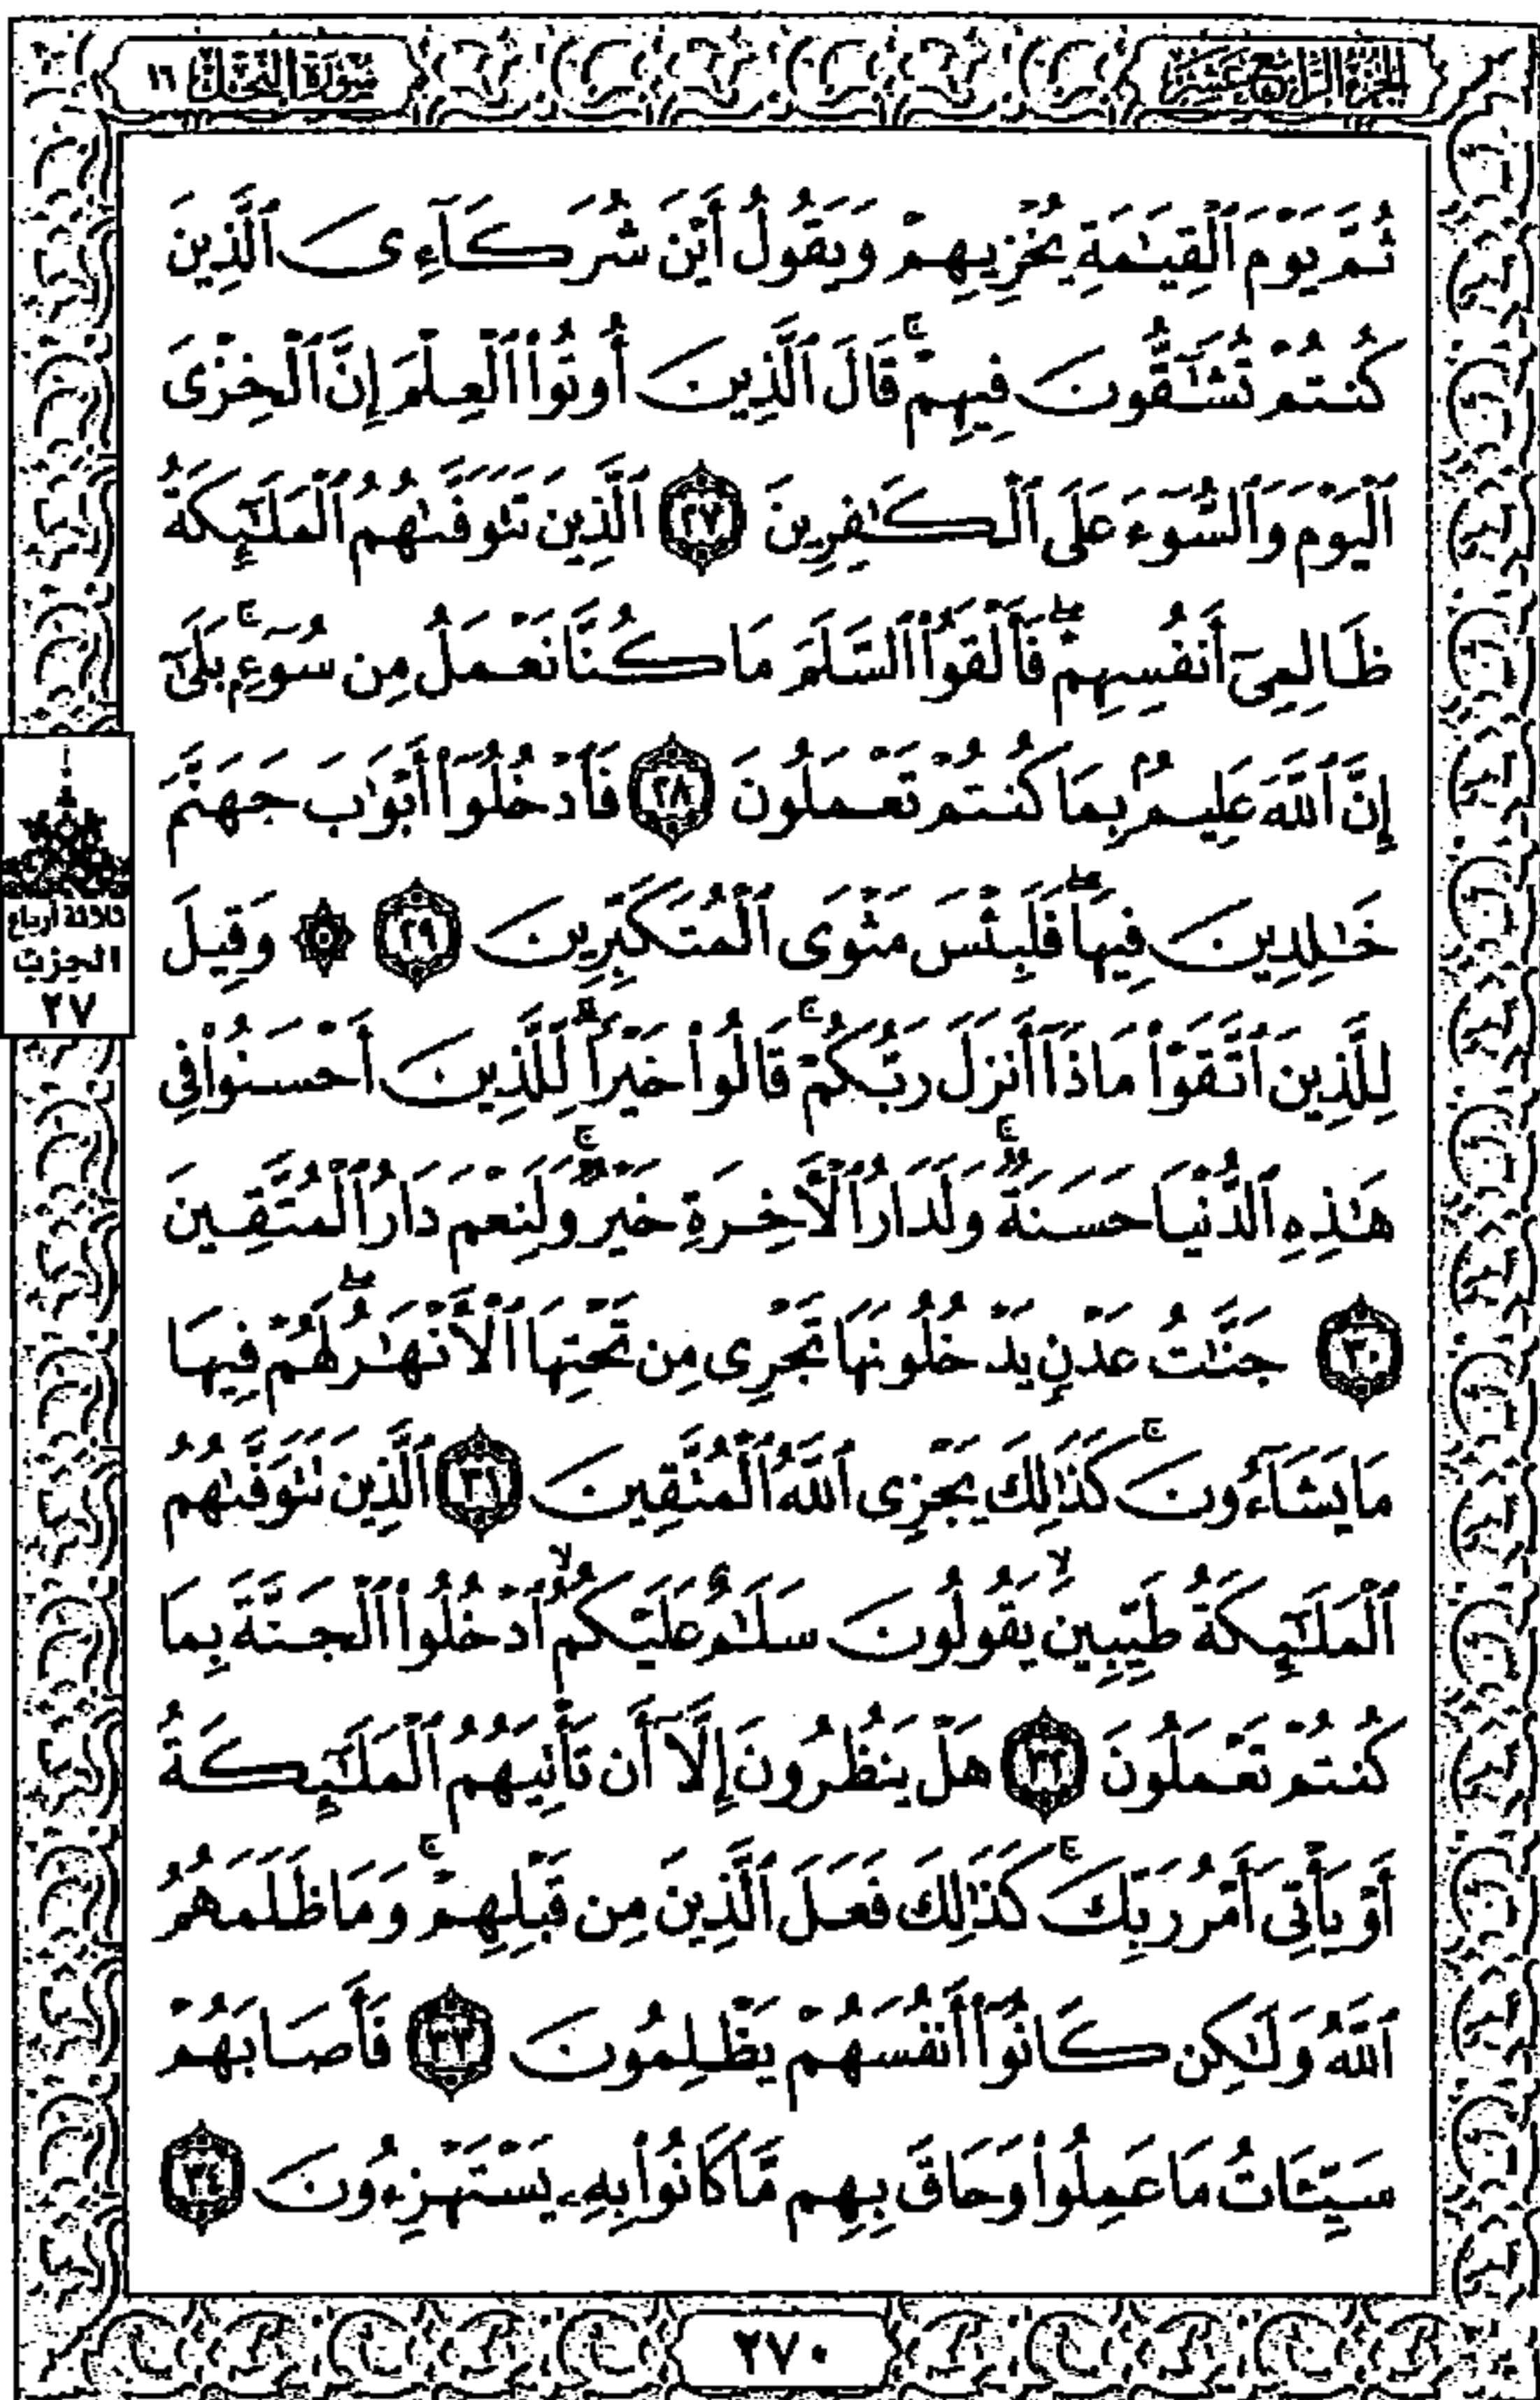 الجزء الرابع عشر
سورة النحل ١٦
ثُمَّ يَوْمَ ٱلْقِيَٰمَةِ يُخْزِيهِمْ وَيَقُولُ أَيْنَ شُرَكَآءِىَ ٱلَّذِينَ
كُنتُمْ تُشَٰٓقُّونَ فِيهِمْ ۚ قَالَ ٱلَّذِينَ أُوتُوا۟ ٱلْعِلْمَ إِنَّ ٱلْخِزْىَ
ٱلْيَوْمَ وَٱلسُّوٓءَ عَلَى ٱلْكَٰفِرِينَ ٢٧ ٱلَّذِينَ تَتَوَفَّىٰهُمُ ٱلْمَلَٰٓئِكَةُ
ظَالِمِىٓ أَنفُسِهِمْ ۖ فَأَلْقَوُا۟ ٱلسَّلَمَ مَا كُنَّا نَعْمَلُ مِن سُوٓءٍۭ ۚ بَلَىٰٓ
إِنَّ ٱللَّهَ عَلِيمٌۢ بِمَا كُنتُمْ تَعْمَلُونَ ٢٨ فَٱدْخُلُوٓا۟ أَبْوَٰبَ جَهَنَّمَ
خَٰلِدِينَ فِيهَا ۖ فَلَبِئْسَ مَثْوَى ٱلْمُتَكَبِّرِينَ ٢٩ ۞ وَقِيلَ
لِلَّذِينَ ٱتَّقَوْا۟ مَاذَآ أَنزَلَ رَبُّكُمْ ۚ قَالُوا۟ خَيْرًا ۗ لِّلَّذِينَ أَحْسَنُوا۟ فِى
هَٰذِهِ ٱلدُّنْيَا حَسَنَةٌ ۚ وَلَدَارُ ٱلْءَاخِرَةِ خَيْرٌ ۚ وَلَنِعْمَ دَارُ ٱلْمُتَّقِينَ
٣٠ جَنَّٰتُ عَدْنٍ يَدْخُلُونَهَا تَجْرِى مِن تَحْتِهَا ٱلْأَنْهَٰرُ ۖ لَهُمْ فِيهَا
مَا يَشَآءُونَ ۚ كَذَٰلِكَ يَجْزِى ٱللَّهُ ٱلْمُتَّقِينَ ٣١ ٱلَّذِينَ تَتَوَفَّىٰهُمُ
ٱلْمَلَٰٓئِكَةُ طَيِّبِينَ ۙ يَقُولُونَ سَلَٰمٌ عَلَيْكُمُ ۙ ٱدْخُلُوا۟ ٱلْجَنَّةَ بِمَا
كُنتُمْ تَعْمَلُونَ ٣٢ هَلْ يَنظُرُونَ إِلَّآ أَن تَأْتِيَهُمُ ٱلْمَلَٰٓئِكَةُ
أَوْ يَأْتِىَ أَمْرُ رَبِّكَ ۚ كَذَٰلِكَ فَعَلَ ٱلَّذِينَ مِن قَبْلِهِمْ ۚ وَمَا ظَلَمَهُمُ
ٱللَّهُ وَلَٰكِن كَانُوٓا۟ أَنفُسَهُمْ يَظْلِمُونَ ٣٣ فَأَصَابَهُمْ
سَيِّـَٔاتُ مَا عَمِلُوا۟ وَحَاقَ بِهِم مَّا كَانُوا۟ بِهِۦ يَسْتَهْزِءُونَ ٣٤
ثلاثة أرباع
الحزب
٢٧
٢٧٠